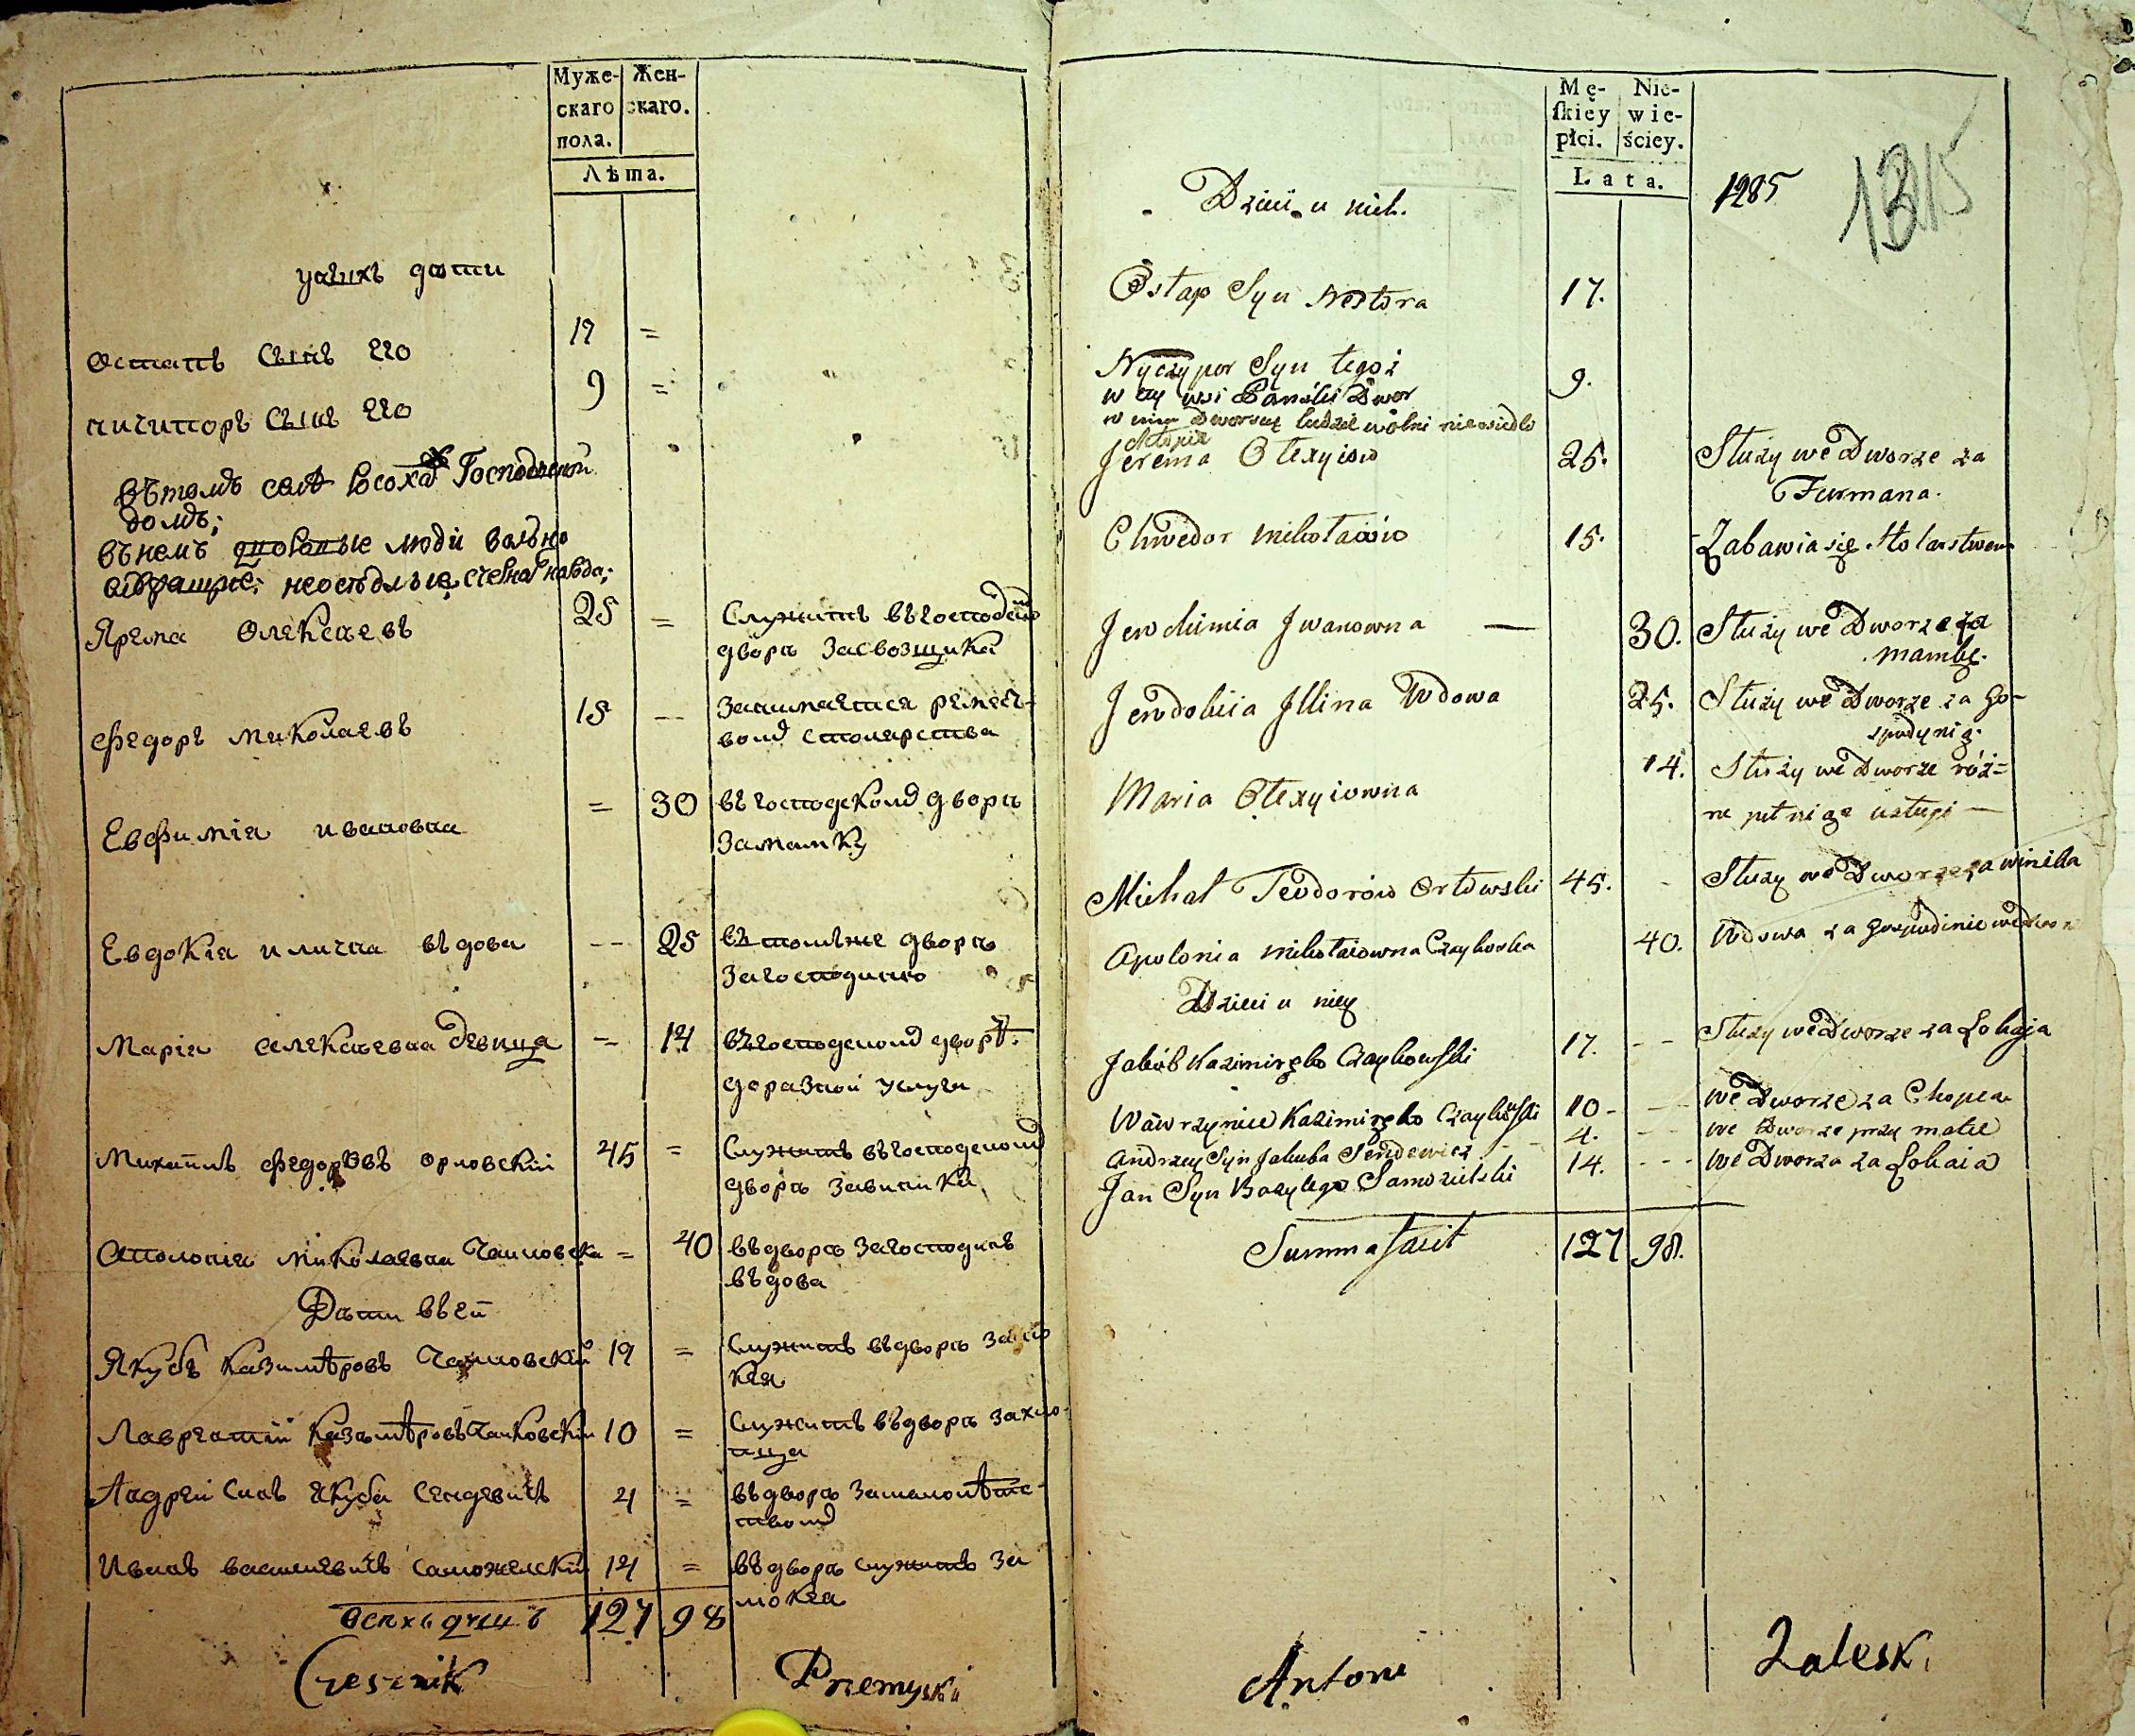 Муже-
скаго
пола.
Жен-
скаго.
Лѣта.
уних дѣти
Остапъ Сынъ его 17 =
ничипоръ Сынъ его 9 =
Въ томъ селѣ Господской
домъ;
въ немъ дворные люди вольно
неоседлые
Ярема Олексеевъ 25 = Служитъ въ господском
дворѣ За
Федоръ Миколаевъ 15 -- Занимается ремес-
вомъ столярства
Евфимія ивановна = 30 въ господскомъ дворѣ
За мамку
Евдокія илична въдова -- 25 въ томъже дворѣ
За господиню
Марія алексеевна девица -- 14 въ господскомъ дворѣ
до разной услуги
Михаилъ федоровъ орловский 45 = Служитъ въ господскомъ
дворѣ За виника
Аполонія Миколаевна Чайковска = 40 въ дворѣ За господинѣ
въдова
Дѣти въ ей
Якубъ Казимѣровъ Чайковский 17 = Служитъ въ дворѣ За ло
кая
Лаврентий Казимѣровъ Чайковский 10 = Служитъ въ дворѣ За хло-
пца
Андрей Синъ Якуба Сендевичъ 4 = въ дворѣ
Иванъ васильевичъ Саможелский 14 = въ дворѣ служитъ За
локая
Всехъ душъ 127 98
Czesznik Przemyski
Mę-
ſkiey
płci.
Nie-
wie-
ściey.
Lata.
1285
Dzieci u nich.
Ostap Syn Nestora 17.
Nyczypor Syn tegoż 9.
w tey wsi Panski Dwor
w nim Dworscy ludzie wolni nieosiedli
Jerema Olexyiow 25. Służy we Dworze za
Furmana.
Chwedor Mikołaiow 15. Zabawia się Stolarstwem
Jewchimia Jwanowna — 30. Służy we Dworze za
mamkę.
Jewdokiia Jllina Wdowa 25. Służy we Dworze za go-
spodynią.
Maria Olexyiowna 14. Służy we Dworze róż=
ne pełniąc usługi —
Michał Teodorów Orłowski 45. - Służy we Dworze za winika
Apolonia Mikołaiowna Czaykoska 40. Wdowa za gospodinie we
Dzieci u niey
Jakub Kazimirzko Czaykowski 17. -- Służy we Dworze za Lokaja
Wawrzyniec Kazimirzko Czaykoski 10 - -- we Dworze za Chopca
Andrzey Syn Jakuba Sendewicz 4. -- we Dworze przy matce
Jan Syn Bazylego Samozielski 14. --- we Dworza za Lokaia
Summa facit 127 98.
Antoni Zaleski